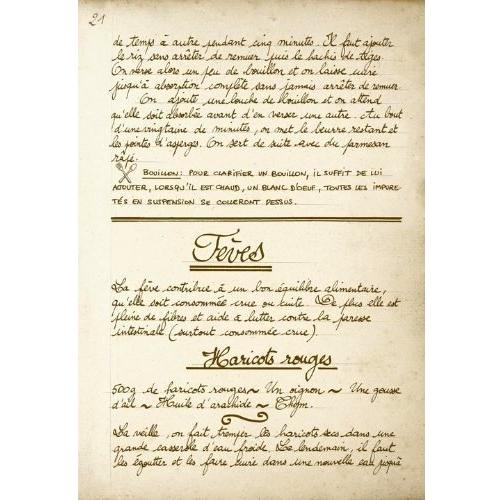 21
de temps à autre pendant cinq minutes. Il faut ajouter
le riz sans arrêter de remuer puis le hachis de tiges.
On verse alors un peu de bouillon et on laisse cuire
jusqu'à absorption complète sans jamais arrêter de remuer.
On ajoute une louche de bouillon et on attend
qu'elle soit absorbée avant d'en verser une autre. Au bout
d'une vingtaine de minutes, on met le beurre restant et
les pointes d'asperges. On sert de suite avec du parmesan
râpé.
BOUILLON: POUR CLARIFIER UN BOUILLON, IL SUFFIT DE LUI
AJOUTER, LORSQU'IL EST CHAUD, UN BLANC D'OEUF, TOUTES LES IMPURE
TÉS EN SUSPENSION SE COLLERONT DESSUS.
Fèves
La fève contribue à un bon équilibre alimentaire,
qu'elle soit consommée crue ou cuite. De plus elle est
pleine de fibres et aide à lutter contre la paresse
intestinale (surtout consommée crue).
Haricots rouges
500g de haricots rouges ~ Un oignon ~ Une gousse
d'ail ~ Huile d'arachide ~ Thym.
La veille, on fait tremper les haricots secs dans une
grande casserole d'eau froide. Le lendemain, il faut
les égoutter et les faire cuire dans une nouvelle eau jusqu'à